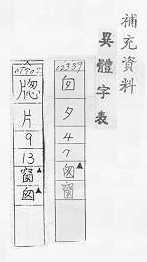 補充資料
異體字表
02337
囪
夕
4
7
囱▲
窗
牕
片
9
13
窗▲
囪▲